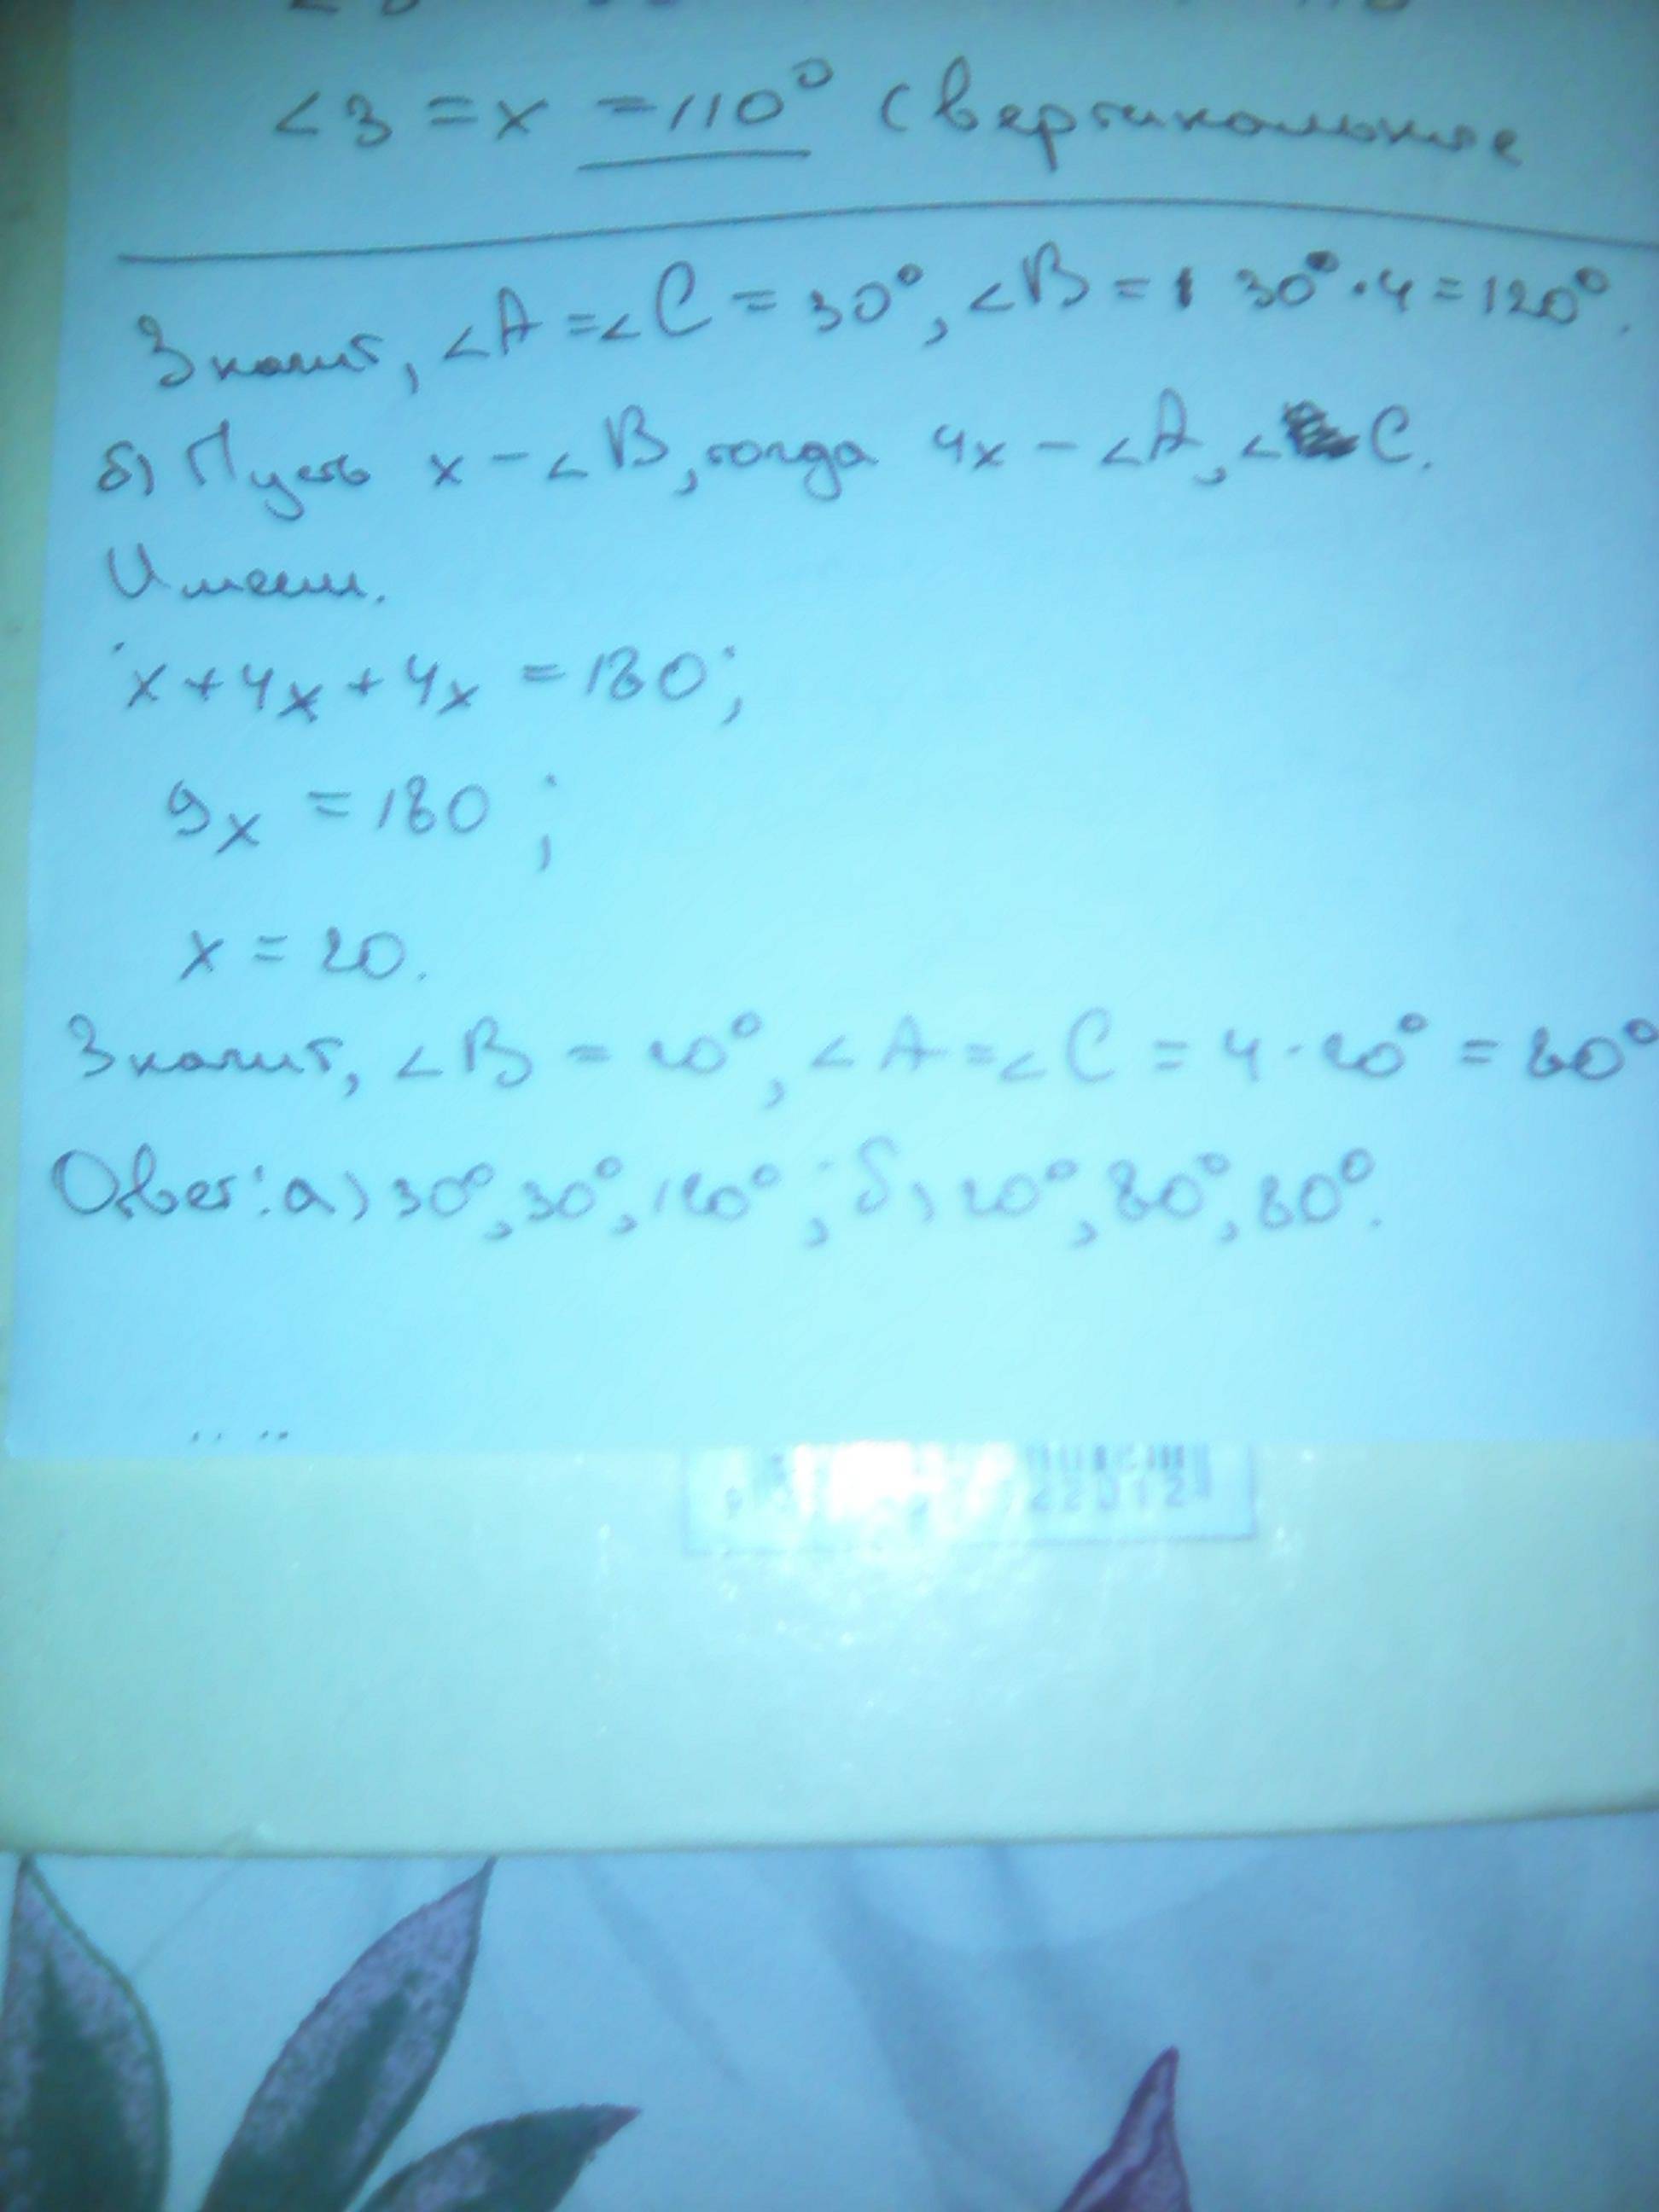 ∠3 = x = 110° (вертикальные
Значит, ∠A = ∠C = 30°, ∠B = 30° · 4 = 120°.
б) Пусть x – ∠B, тогда 4x – ∠A, ∠C.
Имеем.
x + 4x + 4x = 180;
9x = 180;
x = 20.
Значит, ∠B = 20°, ∠A = ∠C = 4 · 20° = 80°
Ответ: а) 30°, 30°, 120°; б) 20°, 80°, 80°.